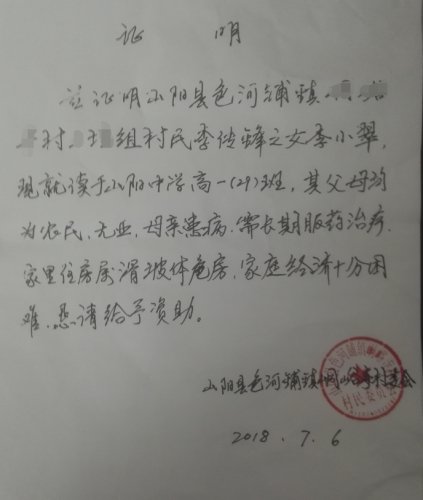 证 明
兹证明山阳县色河铺镇
村 组村民李传锋之女李小翠,
现就读于山阳中学高一(29)班,其父母均
为农民,无业,母亲患病,需长期服药治疗,
家里住房属滑坡体危房,家庭经济十分困
难,恳请给予资助。
山阳县色河铺镇
2018.7.6